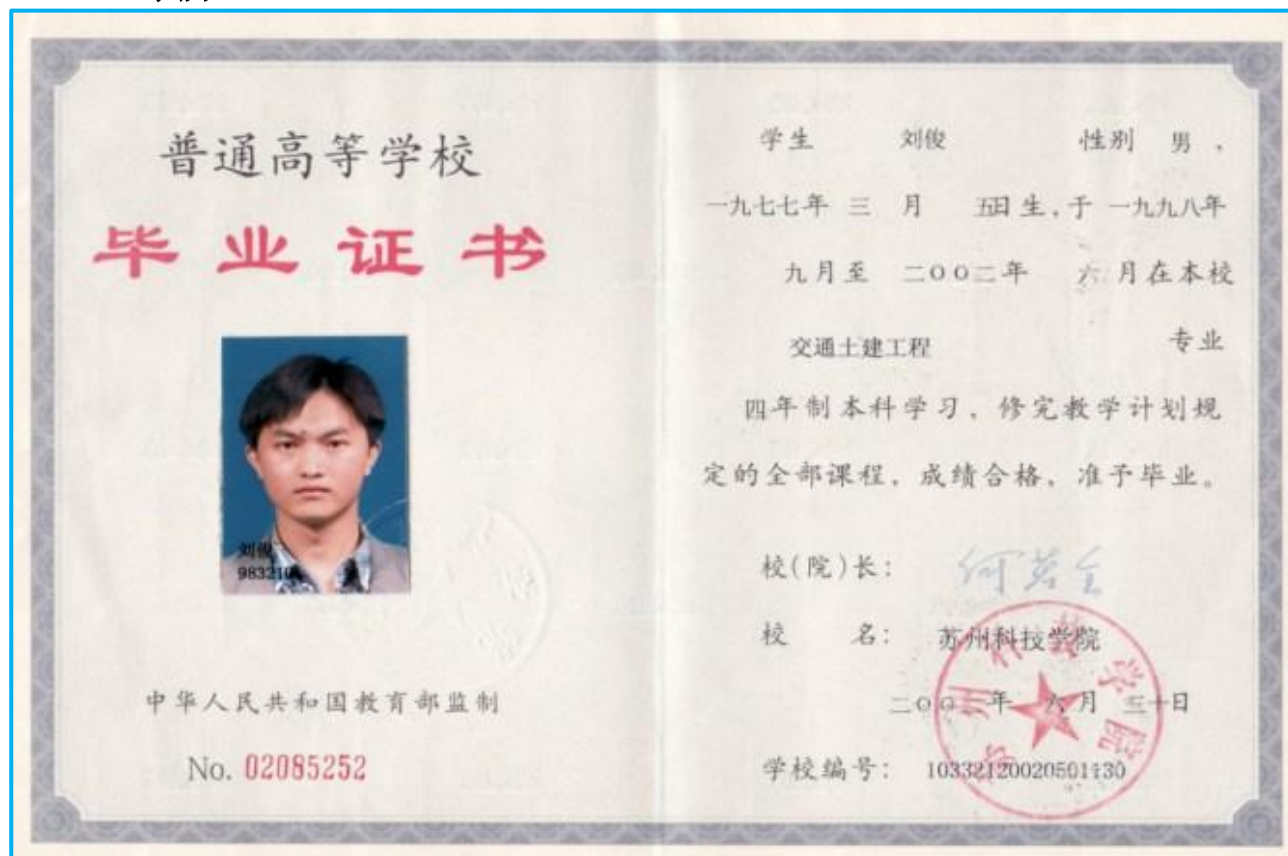 普通高等学校
毕业证书
刘俊
中华人民共和国教育部监制
No. 02085252
学生 刘俊 性别 男，
一九七七年 三 月 五日生，于 一九九八年
九月至 二〇〇二年 六 月在本校
交通土建工程 专业
四年制本科学习，修完教学计划规
定的全部课程，成绩合格，准予毕业。
校(院)长：
校 名： 苏州科技学院
二〇〇 年 六月 三十日
学校编号： 10332120020501430
苏州科技学院